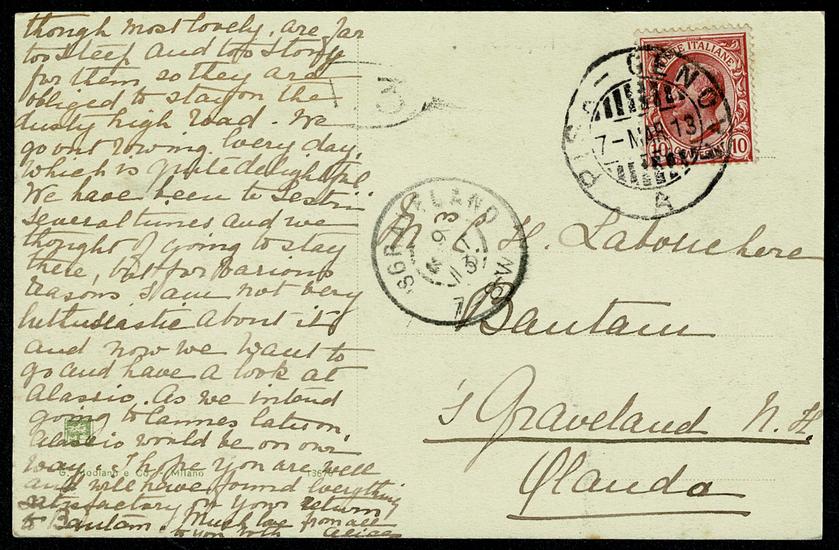 though most lovely, are far
too steep and too stony
for them, so they are
obliged to stay on the
dusty high road. We
go out rowing every day,
which is quite delightful.
We have been to Sestri
several times and we
thought of going to stay
there, but for various
reasons I am not very
enthusiastic about it
and now we want to
go and have a look at
Alassio. As we intend
going to Cannes later on,
Alassio would be on our
way. I hope you are well
and will have found everything
satisfactory on your return
to Bantam. Much love from all
to you both Alice
G. Modiano e Co. Milano
POSTE ITALIANE
10 10
PISA-GENOVA
7-MAR 13
A
'SGRAVELAND
7
H. Labouchere
Bantam
's Graveland N. H.
Olanda